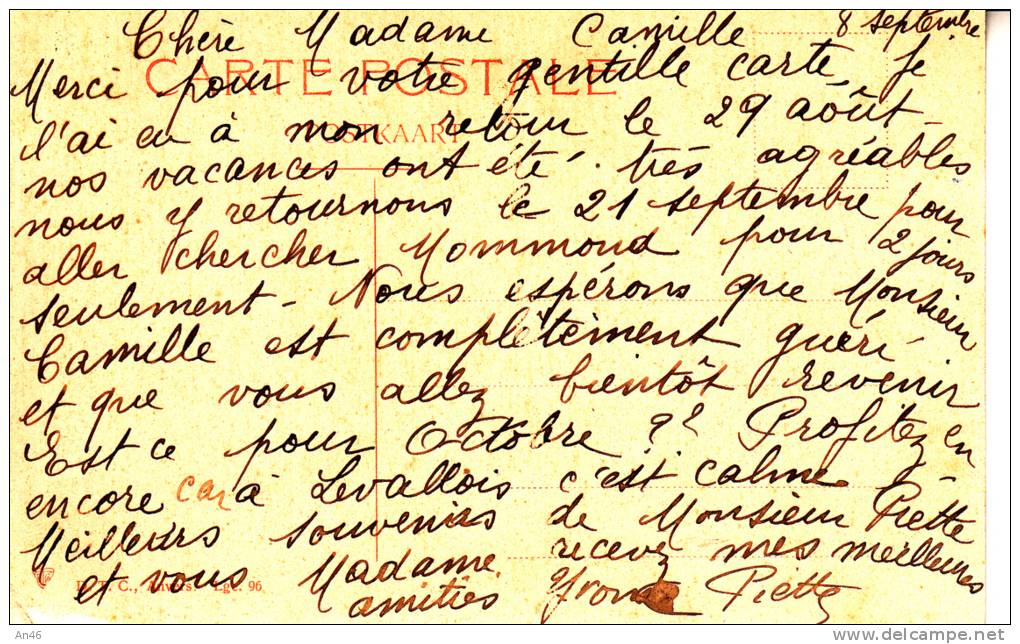 8 septembre
Chère Madame Camille
CARTE POSTALE
Merci pour votre gentille carte, je
POSTKAART
l'ai eu à mon retour le 29 août -
nos vacances ont été très agréables
nous y retournons le 21 septembre pour
aller chercher Mommond pour 2 jours
seulement - Nous espérons que Monsieur
Camille est complètement guéri
et que vous allez bientôt revenir
Est ce pour Octobre ?? Profitez en
encore car à Levallois c'est calme -
Meilleurs souvenirs de Monsieur Piette
et vous Madame recevez mes meilleures
amitiés Yvonne Piette
Anvers. Lgc. 96
An46
delcampe.net